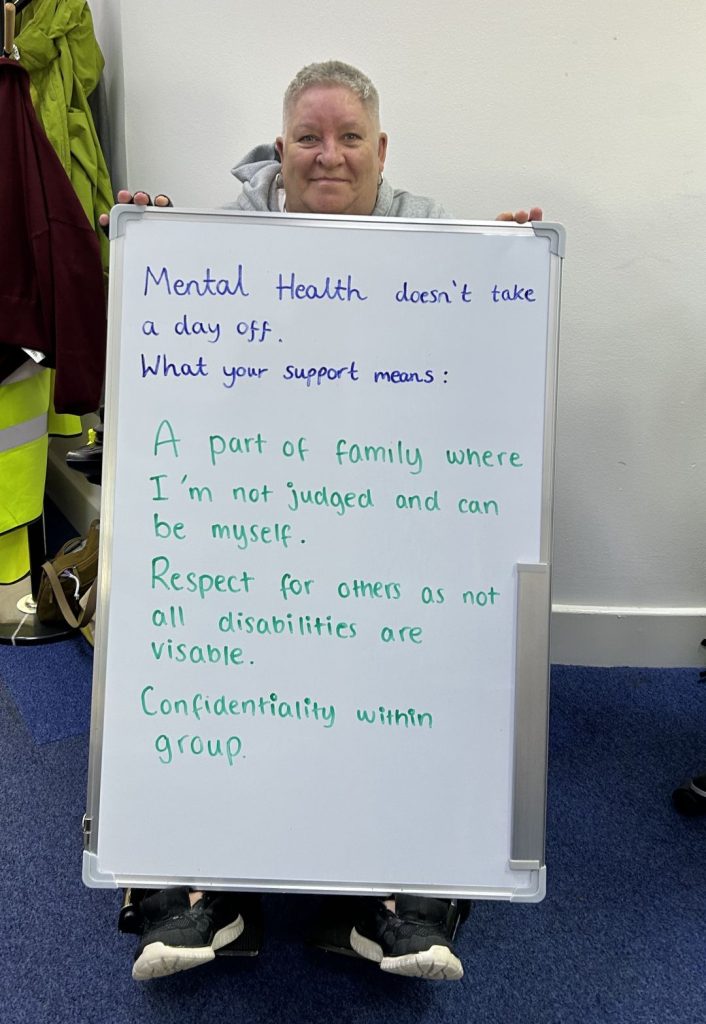 Mental Health doesn't take
a day off.
What your support means:
A part of family where
I'm not judged and can
be myself.
Respect for others as not
all disabilities are
visable.
Confidentiality within
group.